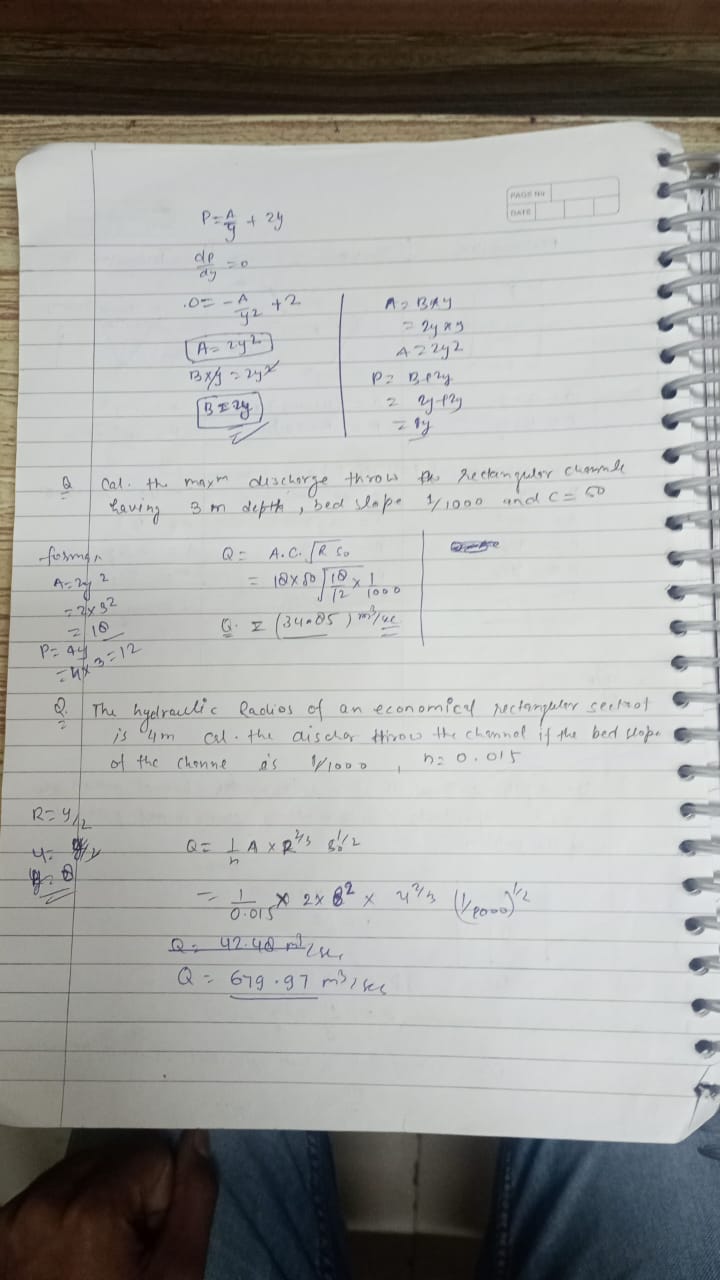 PAGE No
DATE
P = A/y + 2y
dp/dy = 0
.0 = -A/y2 + 2
A = 2y2
B x y = 2y2
B = 2y
A = B x y
= 2y x y
A = 2y2
P = B + 2y
= 2y + 2y
= 4y
Q Cal. the maxm discharge throw the Rectangular channle
having 3 m depth, bed slope 1/1000 and C = 50
A = 2y2
= 2 x 32
= 18
P = 4y
= 4 x 3 = 12
Q = A.C. √R So
= 18 x 50 √18/12 x 1/1000
Q = (34.85) m3/sec
Q. The hydraulic Radios of an economical rectangular
is 4m cal. the dischar throw the channel if the bed slope
of the channe is 1/1000, n = 0.015
R = y/2
4 = y/2
y = 8
Q = 1/n A x R2/3 So1/2
= 1/0.015 x 2 x 82 x 42/3 (1/1000)1/2
Q = 42.48 m3/sec
Q = 679.97 m3/sec